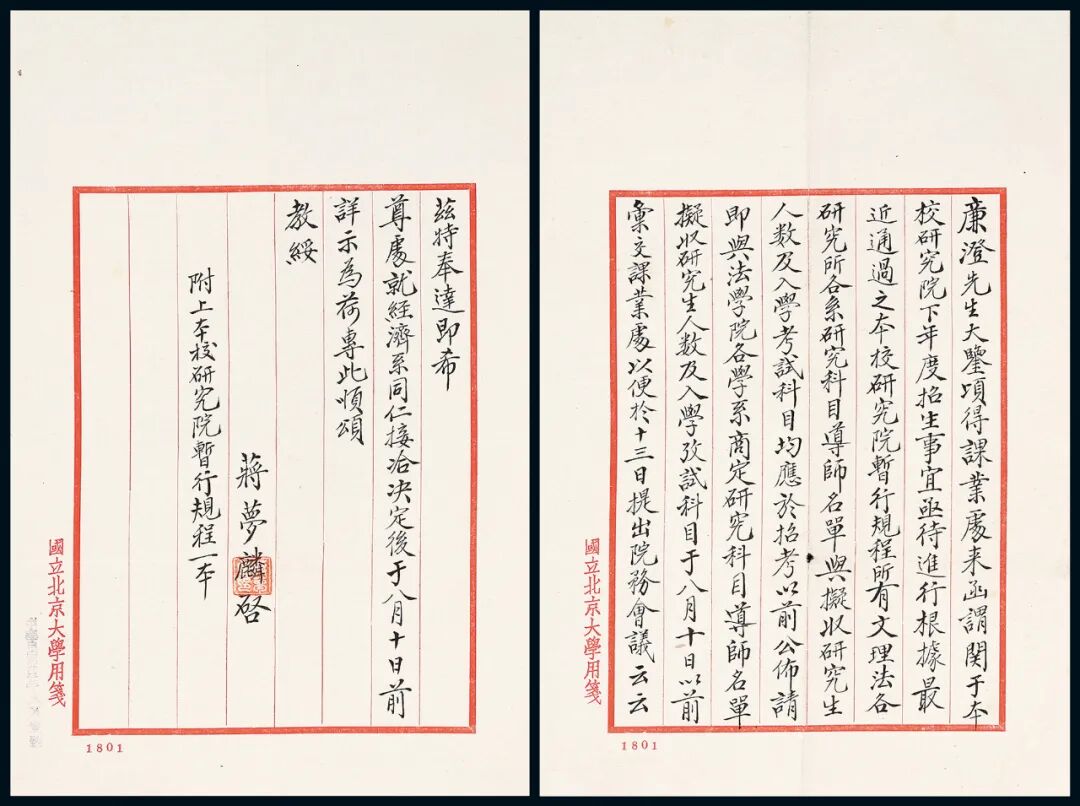 廉澄先生大鑒頃得課業處来函謂関于本
校研究院下年度招生事宜亟待進行根據最
近通過之本校研究院暫行規程所有文理法各
研究所各系研究科目導師名單與擬收研究生
人数及入學考試科目均應於招考以前公佈請
即與法學院各學系商定研究科目導師名單
擬收研究生人数及入學攷試科目于八月十日以前
彙交課業處以便於十三日提出院務會議云云
國立北京大學用箋
1801
茲特奉達即希
尊處就經濟系同仁接洽决定後于八月十日前
詳示為荷專此順頌
教綏
蔣夢麟啓
附上本校研究院暫行規程一本
國立北京大學用箋
1801